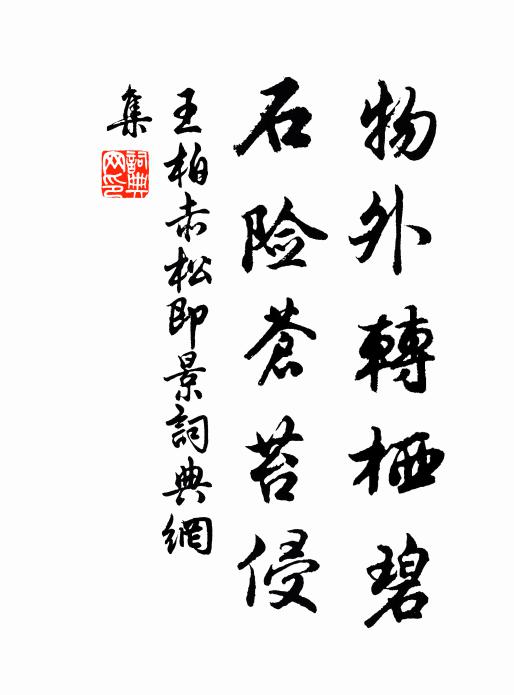 物外轉栖碧
石险蒼苔侵
王柏赤松即景詞典網
集
詞典网印